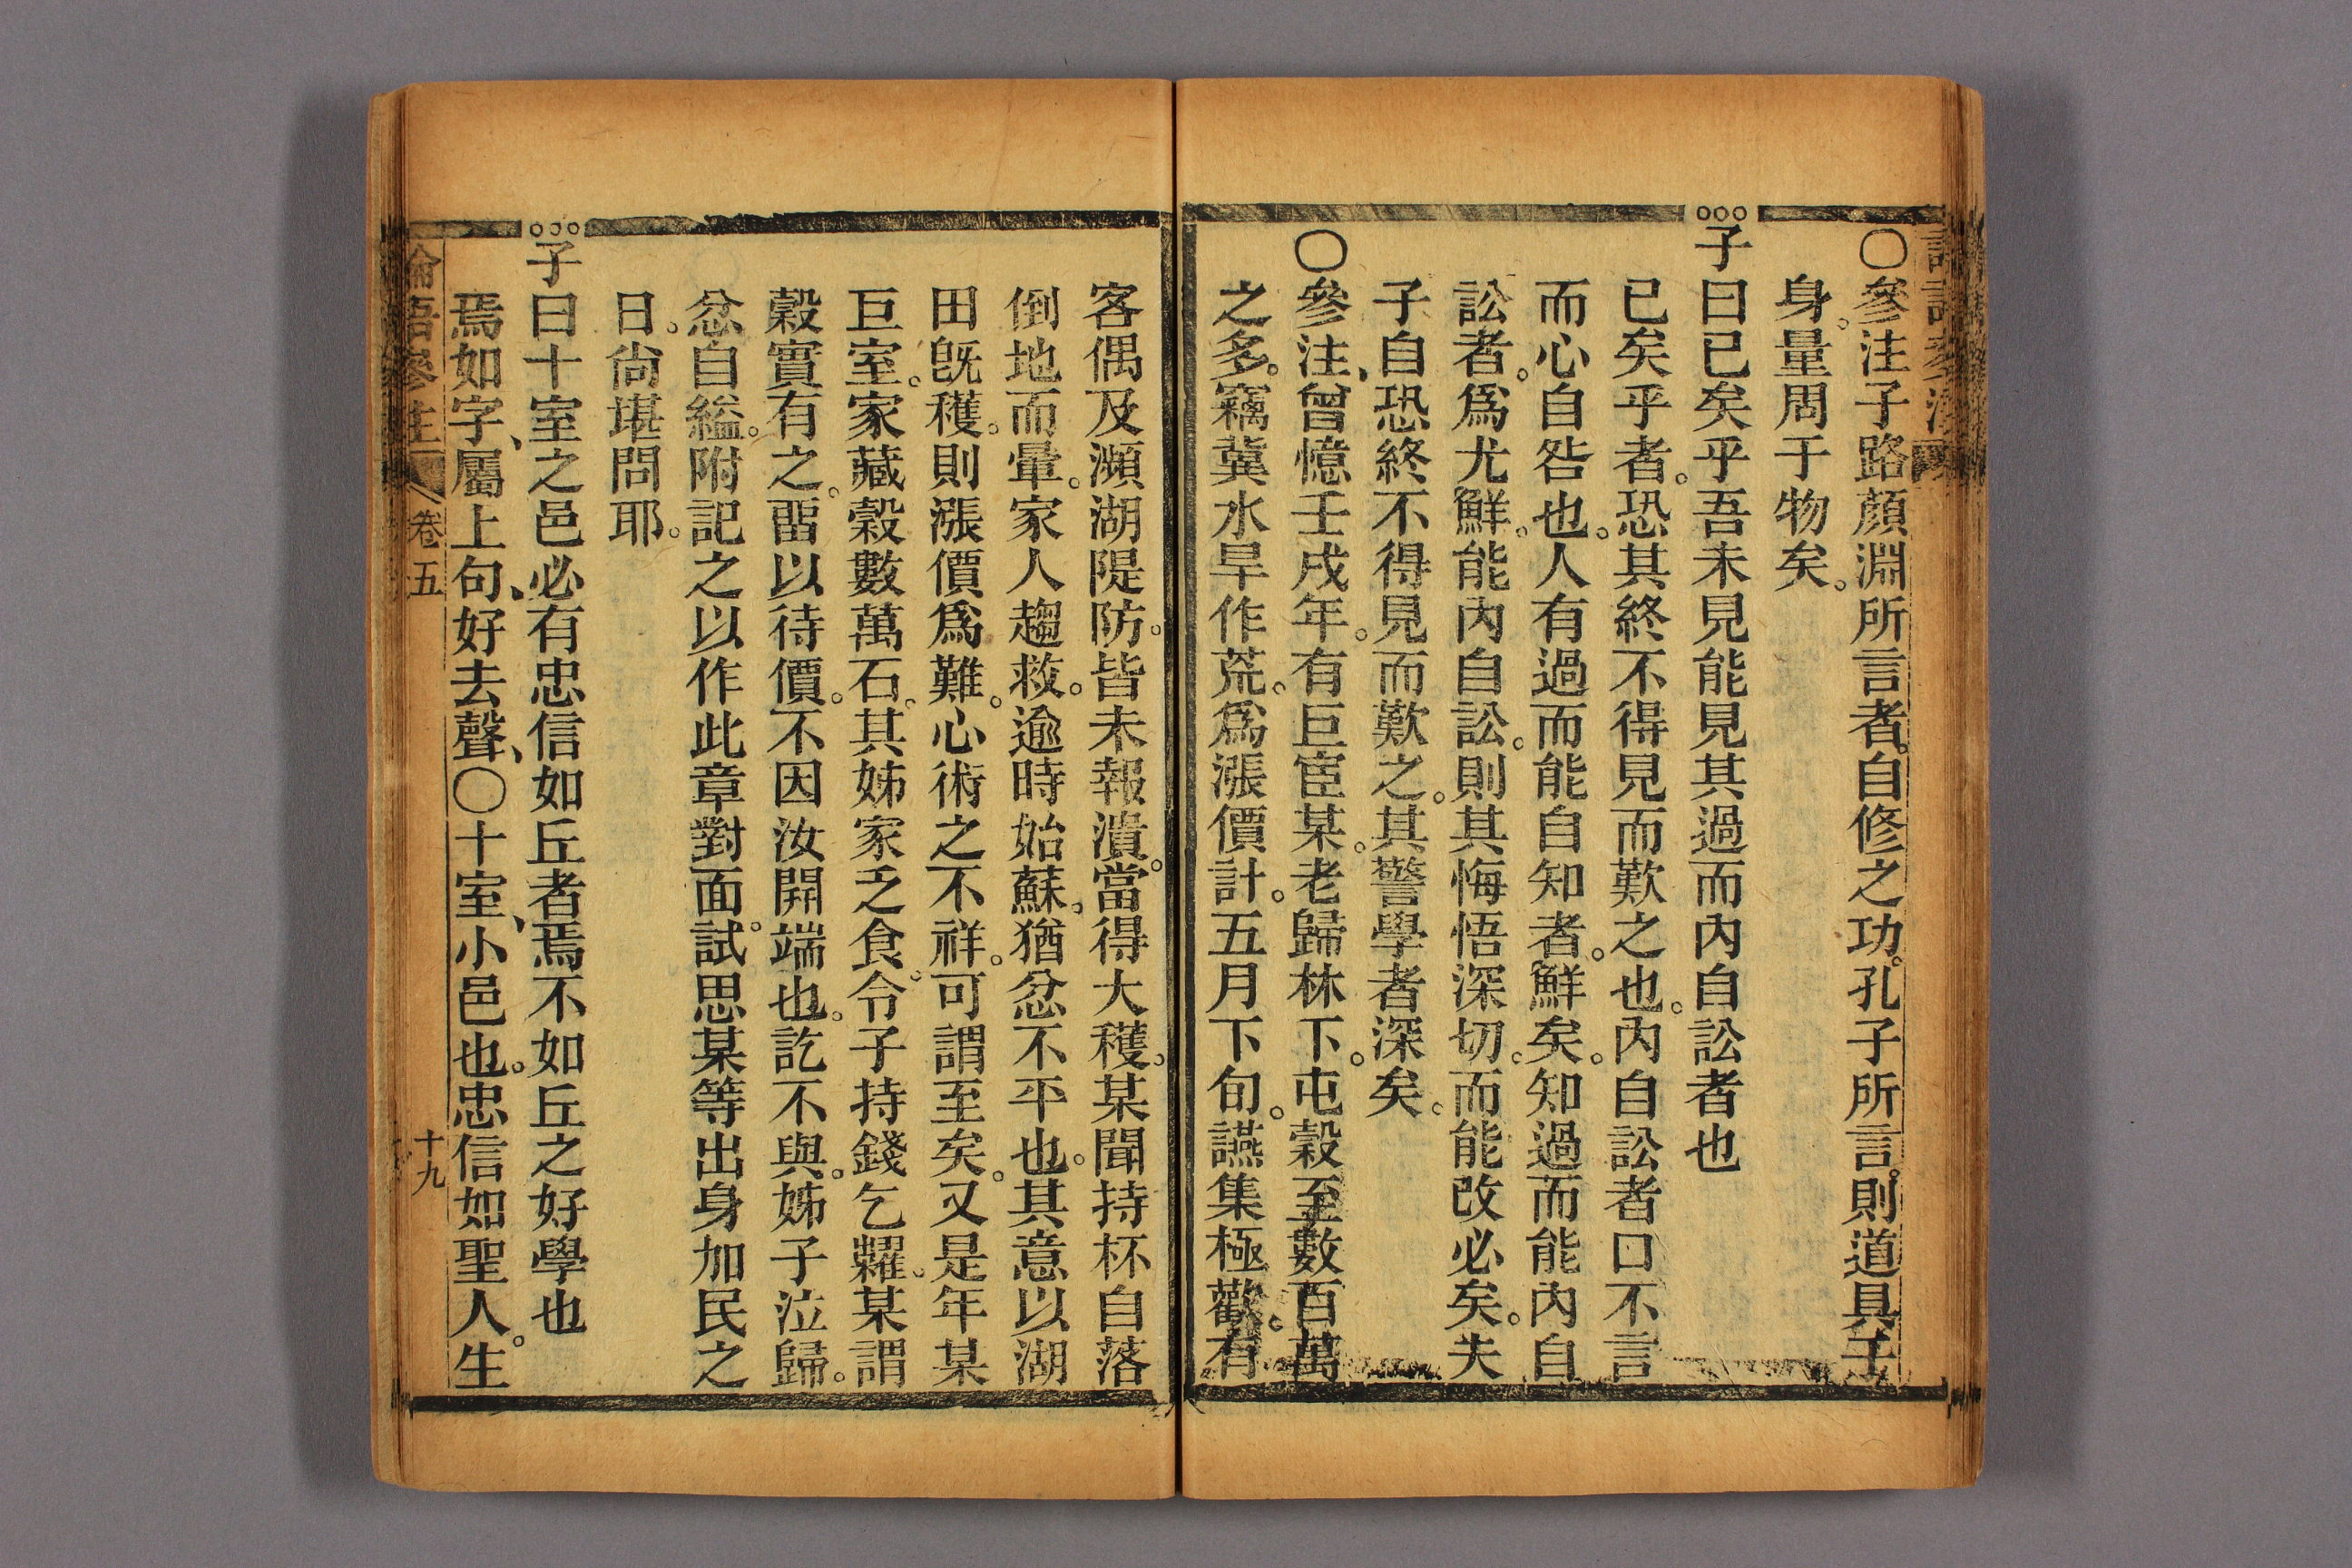 〇參注子路顏淵所言者。自修之功。孔子所言。則道具于
身。量周于物矣。
子曰已矣乎吾未見能見其過而內自訟者也
已矣乎者。恐其終不得見而歎之也。內自訟者口不言
而心自咎也。人有過而能自知者。鮮矣。知過而能內自
訟者。爲尤鮮。能內自訟。則其悔悟深切。而能改必矣。夫
子自恐終不得見而歎之。其警學者深矣。
〇參注、曾憶壬戌年。有巨宦某。老歸林下。屯穀至數百萬
之多。竊冀水旱作荒。爲漲價計。五月下旬。讌集極歡。有
客偶及瀕湖隄防。皆未報潰。當得大穫。某聞持杯自落
倒地而暈。家人趨救。逾時始蘇。猶忿不平也。其意以湖
田旣穫。則漲價爲難。心術之不祥。可謂至矣。又是年某
巨室。家藏穀數萬石。其姊家乏食。令子持錢乞糶。某謂
穀實有之。畱以待價。不因汝開端也。訖不與。姊子泣歸。
忿自縊。附記之以作此章對面。試思某等出身加民之
日。尙堪問耶。
子曰十室之邑必有忠信如丘者焉不如丘之好學也
焉如字、屬上句、好去聲、〇十室、小邑也。忠信如聖人。生
論語參注 卷五 十九